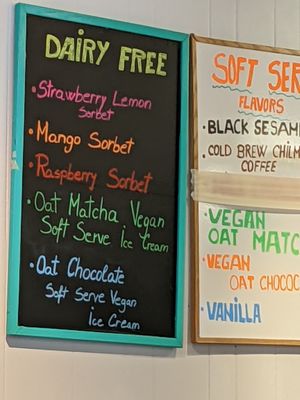 DAIRY FREE
· Strawberry Lemon
Sorbet
· Mango Sorbet
· Raspberry Sorbet
· Oat Matcha Vegan
Soft Serve Ice Cream
· Oat Chocolate
Soft Serve Vegan
Ice Cream
SOFT SER
FLAVORS
· BLACK SESAM
· COLD BREW CHLM
COFFEE
· VEGAN
OAT MATC
· VEGAN
OAT CHOCO
· VANILLA